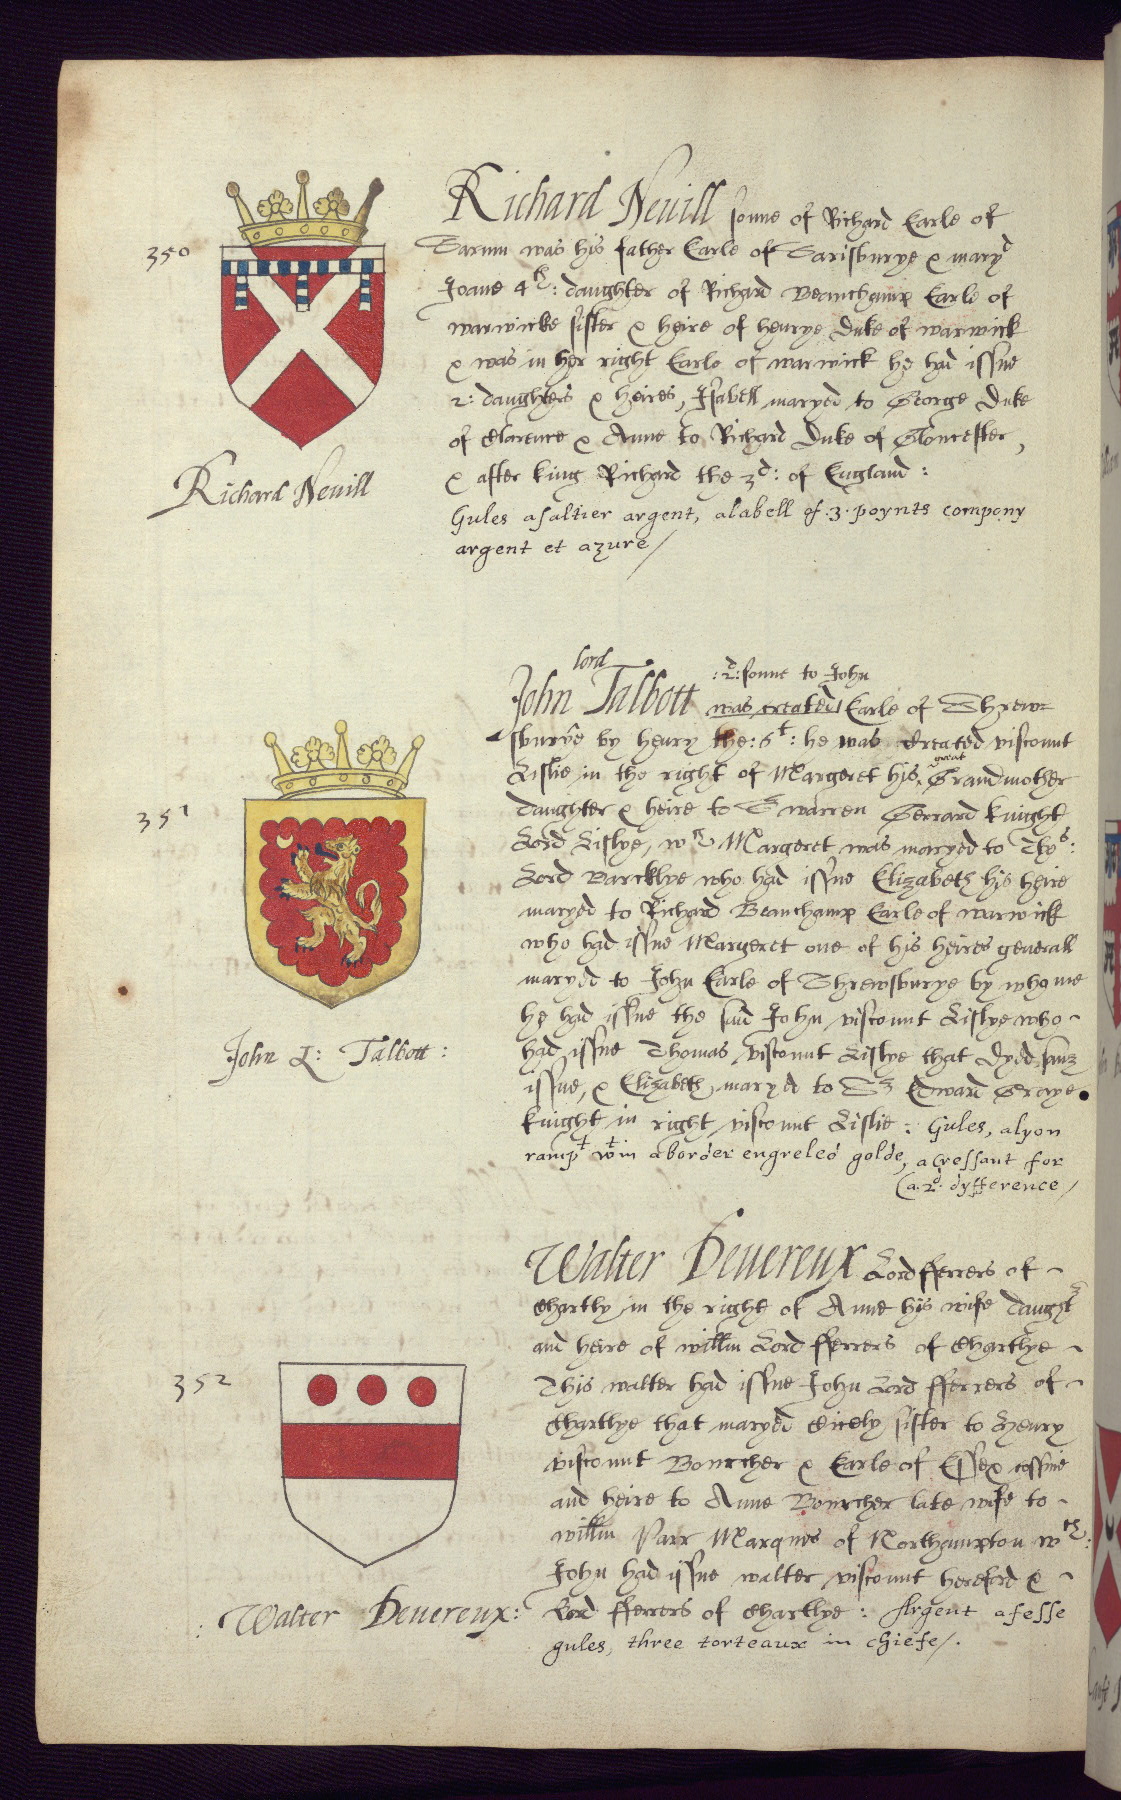 350
Richard Nevill sonne of Richard Earle of
Sarum was his father Earle of Sarisburye & maryd
Joane 4th: daughter of Richard Beauchamp Earle of
warwicke sister & heire of henrye Duke of warwick
& was in her right Earle of warwick he had issue
2: daughters & heires, Isabell maryed to George Duke
of Clarence & Anne to Richard Duke of Gloucester,
& after king Richard the 3d: of England:
Gules a saltier argent, a labell of .3. poynts compony
argent et azure/
Richard Nevill
351
lord
:2d: sonne to John
John Talbott was created Earle of Shrew=
sburye by henry the: 6t: he was Created viscount
great
Lislie in the right of Margeret his Grandmother
daughter & heire to warren Gerrard knight
Lord Lislye, wch Margeret was maryed to Thos:
Lord Barcklye who had issue Elizabeth his heire
maryed to Richard Beauchamp Earle of warwick
who had issue Margeret one of his heires generall
maryed to John Earle of Shrewsburye by whome
he had issue the said John viscount Lislye who
had issue Thomas viscount Lislye that dyed sanz
issue, & Elizabeth maryed to Sr Edward Graye
knight in right viscount Lislie: Gules, a lyon
rampt wtin a border engreled golde, a cressant for
a .2d. dyfference/
John L: Talbott:
352
Walter Devereux Lord fferrers of
Chartly in the right of Anne his wife daughtr
and heire of willm Lord fferrers of Chartlye
This walter had issue John Lord fferrers of
Chartlye that maryed Cicely sister to Henry
viscount Bourcher & Earle of Essex cossine
and heire to Anne Bourcher late wife to
willm Parr Marques of Northampton wch:
John had issue walter viscount hereford &
Lord fferrers of Chartlye: Argent a fesse
gules, three torteaux in chiefe/.
: Walter Devereux: